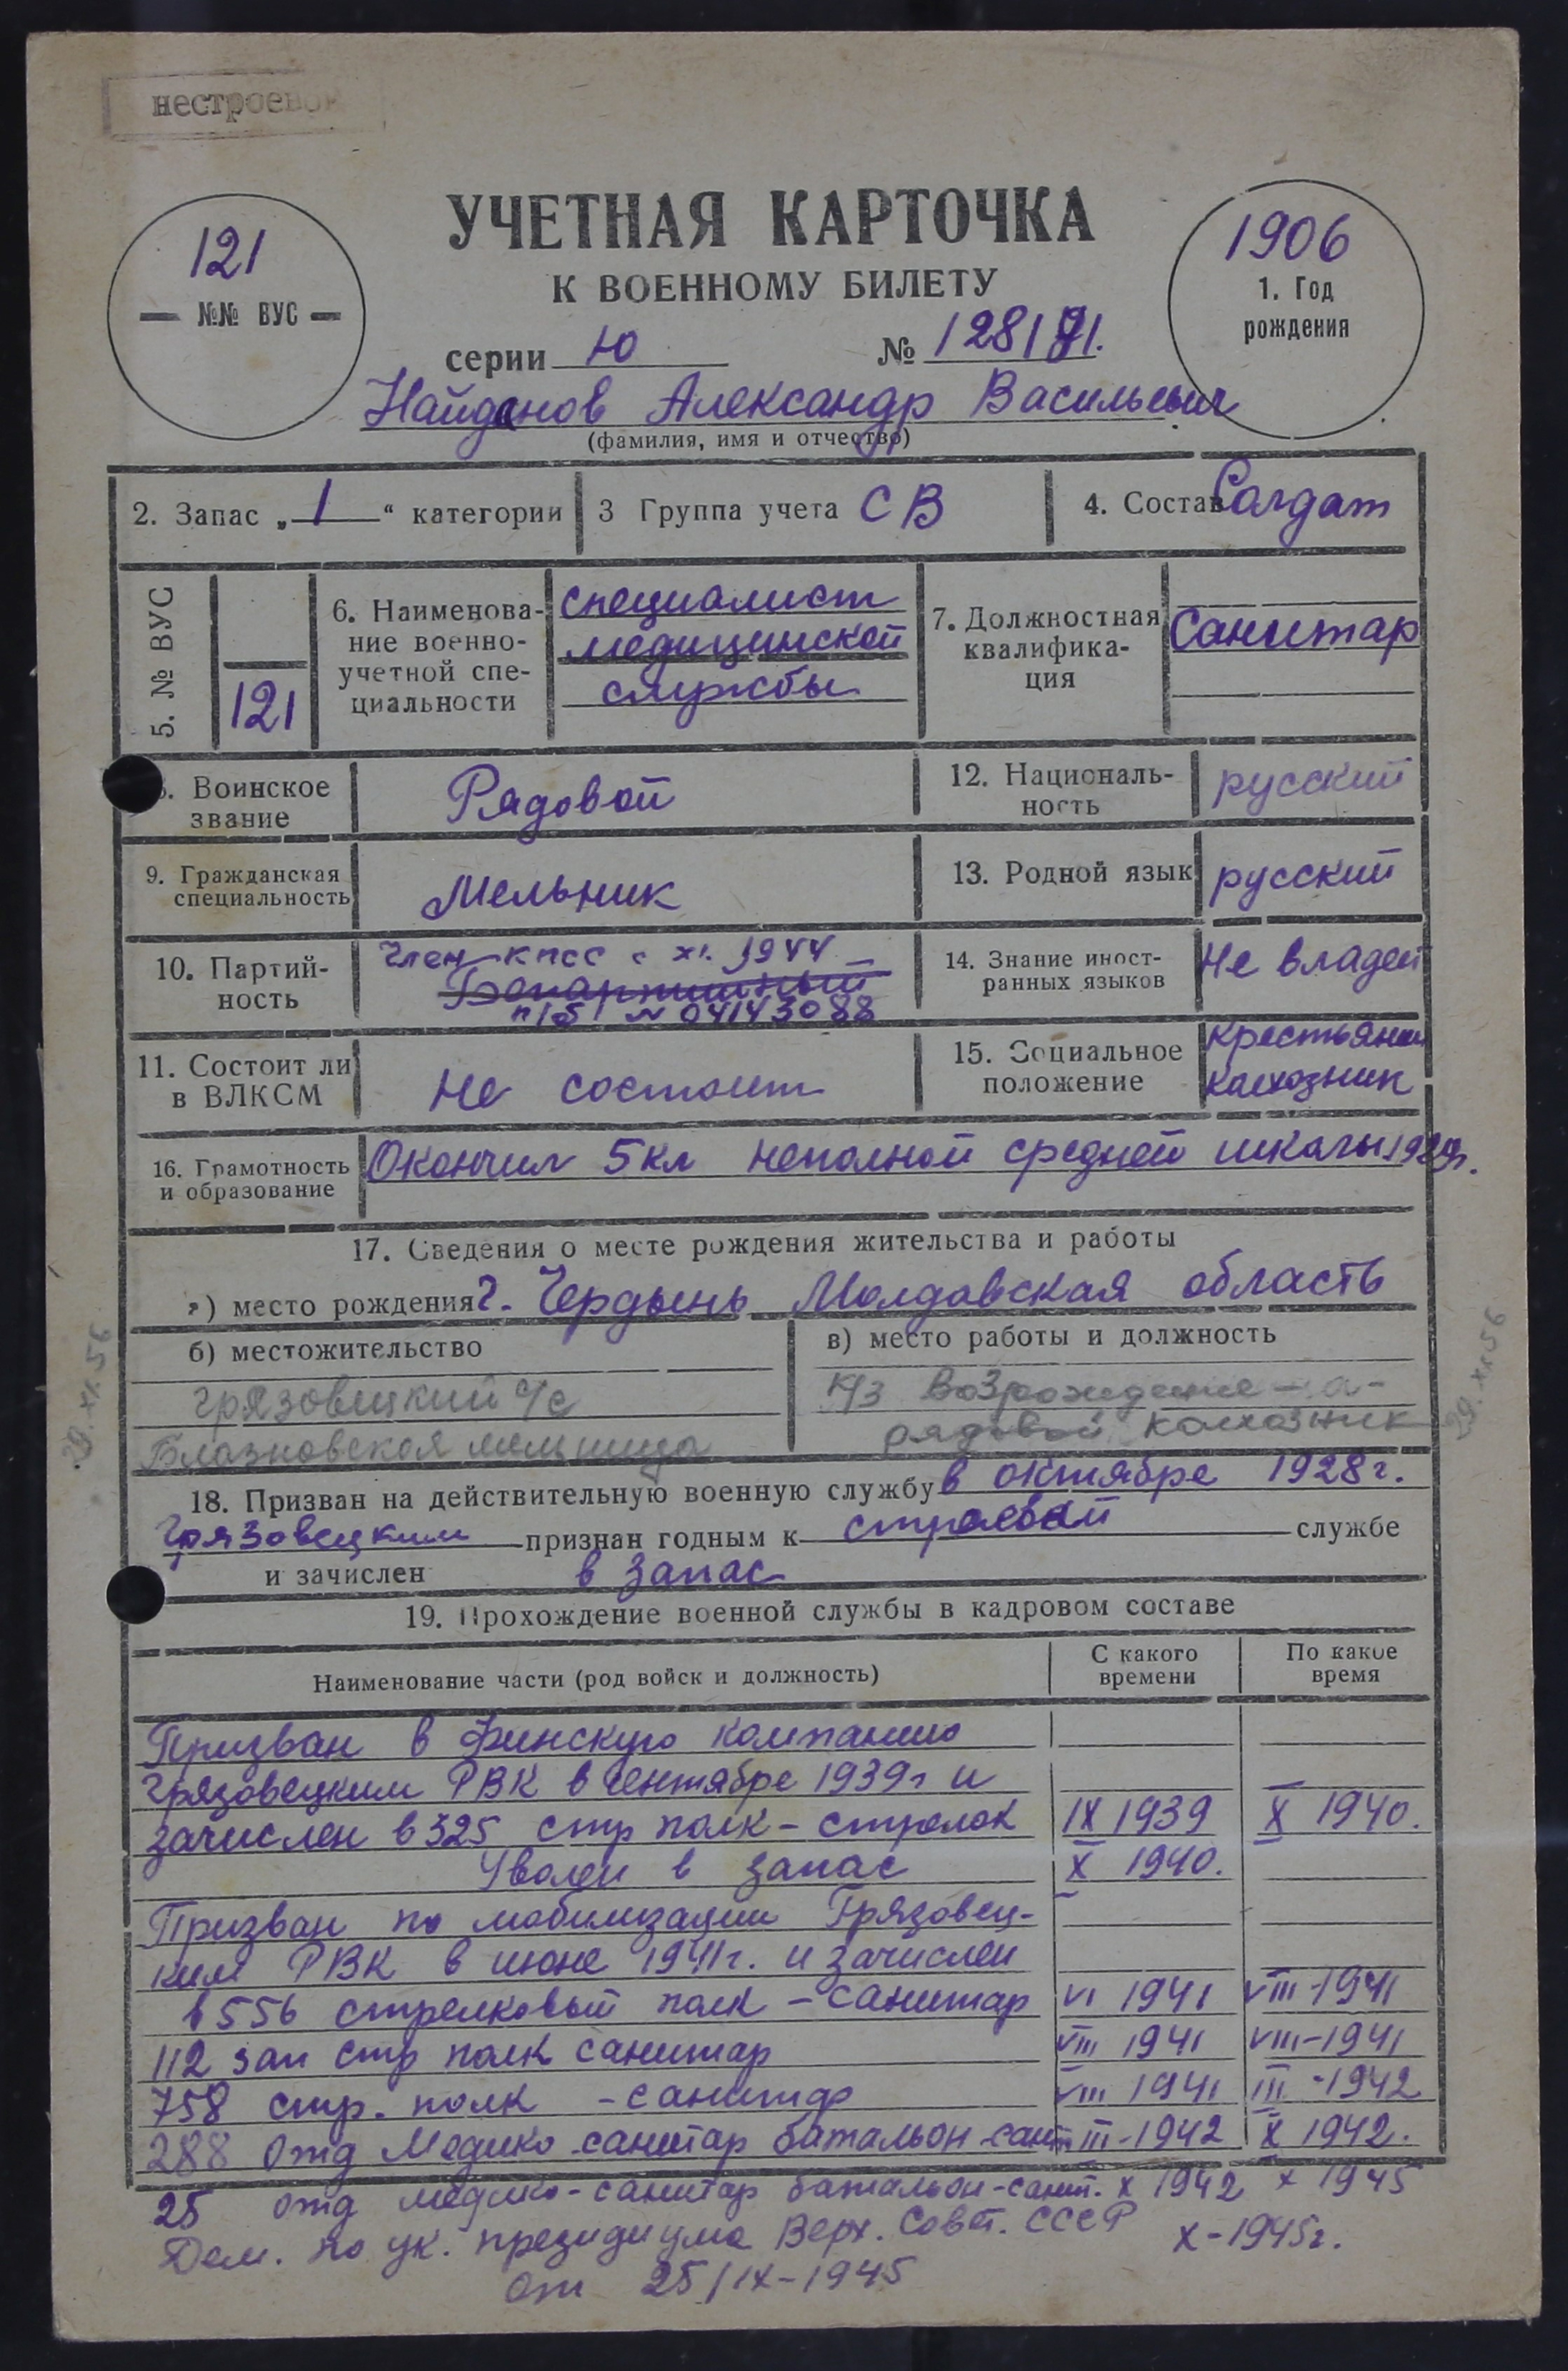 нестроевой
121
№№ ВУС
УЧЕТНАЯ КАРТОЧКА
К ВОЕННОМУ БИЛЕТУ
1906
1. Год
рождения
серии Ю № 128171.
Найданов Александр Васильевич
(фамилия, имя и отчество)
2. Запас „1“ категории 3 Группа учета СВ 4. Состав Солдат
5. № ВУС 121
6. Наименова-
ние военно-
учетной спе-
циальности
специалист
медицинской
службы
7. Должностная
квалифика-
ция
Санитар
8. Воинское
звание
Рядовой
12. Националь-
ность
русский
9. Гражданская
специальность
Мельник
13. Родной язык русский
10. Партий-
ность
Член КПСС с XI. 1944
Беспартийный
п/б № 04143088
14. Знание иност-
ранных языков
Не владеет
11. Состоит ли
в ВЛКСМ
Не состоит
15. Социальное
положение
крестьянин
колхозник
16. Грамотность
и образование
Окончил 5 кл неполной средней школы 1929г.
17. Сведения о месте рождения жительства и работы
а) место рождения г. Чердынь Молдавская область
б) местожительство
Грязовецкий с/с
Блазновская мельница
в) место работы и должность
к/з Возрождение
рядовой колхозник
29.XI.56
29.XI.56
18. Призван на действительную военную службу в октябре 1928г.
Грязовецким признан годным к строевой службе
и зачислен в запас
19. Прохождение военной службы в кадровом составе
Наименование части (род войск и должность) С какого времени По какое время
Призван в Финскую компанию
Грязовецким РВК в сентябре 1939г и
зачислен в 325 стр полк - стрелок IX 1939 X 1940.
Уволен в запас X 1940.
Призван по мобилизации Грязовец-
ким РВК в июне 1941г. и зачислен
в 556 стрелковый полк - санитар VI 1941 VIII-1941
112 зап стр полк санитар VIII 1941 VIII-1941
758 стр. полк - санитар VIII 1941 III-1942
288 отд Медико-санитар батальон-санит III-1942 X 1942.
25 отд медико-санитар батальон-санит. X 1942 X 1945
Дем. по ук. президиума Верх. Совет. СССР X-1945г.
от 25/IX-1945